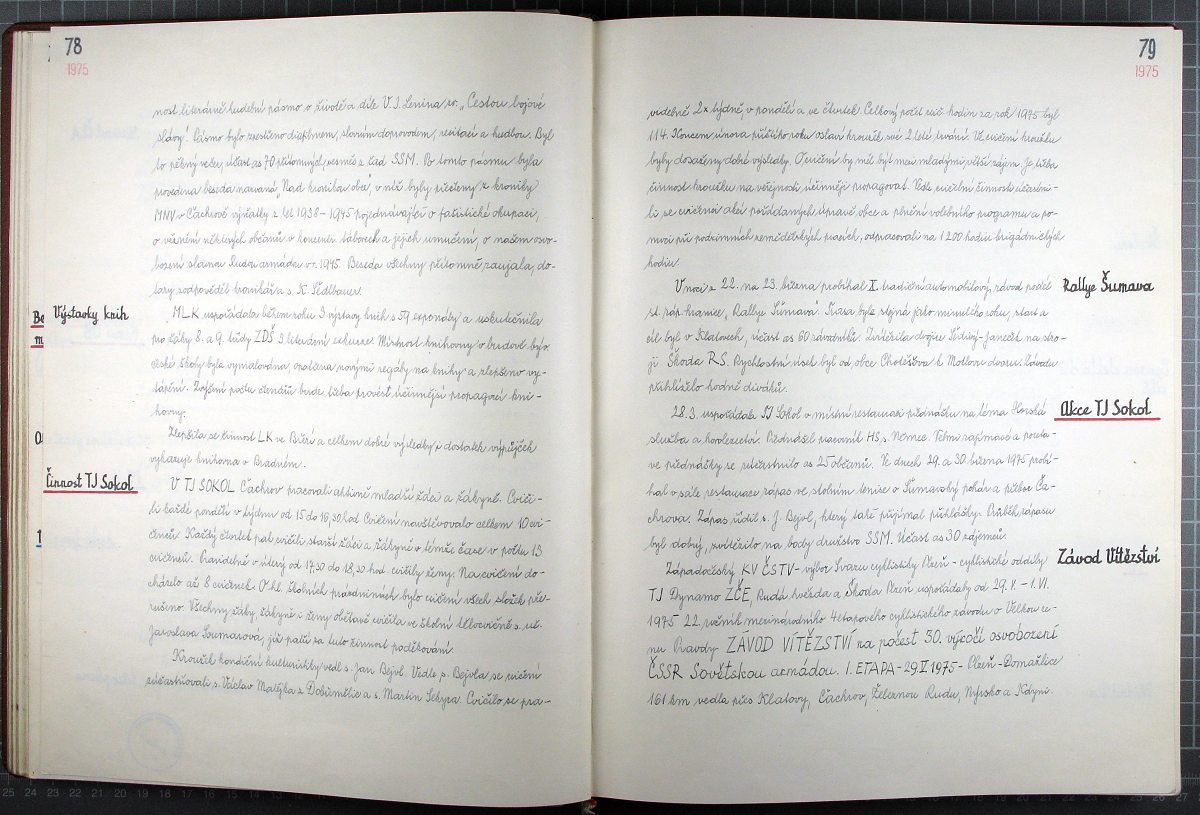 78
1975
nost literárně hudební pásmo o životě a díle V. I. Lenina zv. „Cestou bojové
slávy". Pásmo bylo zpestřeno diafilmem, slovním doprovodem, recitací a hudbou. Byl
to pěkný večer, účast as 70 přítomných, vesměs z řad SSM. Po tomto pásmu byla
provedena beseda nazvaná „Nad kronikou obce", v níž byly přečteny z kroniky
MNV v Čachrově výňatky z let 1938 - 1945 pojednávající o fašistické okupaci,
o věznění některých občanů v koncentr. táborech a jejich umučení, o našem osvo-
bození slavnou Rudou armádou v r. 1945. Beseda všechny přítomné zaujala, do-
tazy zodpověděl kronikář s. K. Sedlbauer.
Výstavky knih
MLK uspořádala během roku 3 výstavy knih s 59 exponáty a uskutečnila
pro žáky 8. a 9. třídy ZDŠ 3 literární exkurse. Místnost knihovny v budově býv.
české školy byla vymalována, opatřena novými regály na knihy a zlepšeno vy-
tápění. Zvýšení počtu čtenářů bude třeba provést účinnější propagací kni-
hovny.
Zlepšila se činnost LK ve a celkem dobré výsledky i dostatek výpůjček
vykazuje knihovna v Bradném.
Činnost TJ Sokol
V TJ SOKOL Čachrov pracovali aktivně mladší žáci a žákyně. Cviči-
li každé pondělí v týdnu od 15 do 16,30 hod. Cvičení navštěvovalo celkem 10 cvi-
čenců. Každý čtvrtek pak cvičili starší žáci a žákyně v témže čase v počtu 13
cvičenců. Pravidelně v úterý od 17,30 do 18,30 hod. cvičily ženy. Na cvičení do-
cházelo až 8 cvičenek. O hl. školních prázdninách bylo cvičení všech složek pře-
rušeno. Všechny žáky, žákyně i ženy obětavě cvičila ve školní tělocvičně s. uč.
Jaroslava Soumarová, jíž patří za tuto činnost poděkování.
Kroužek kondiční kulturistiky vedl s. Jan Bejvl. Vedle s. Bejvla se cvičení
zúčastňovali s. Václav Matějka z Dobřemilic a s. Martin Sekyra. Cvičilo se pra-
79
1975
videlně 2x týdně, v pondělí a ve čtvrtek. Celkový počet cvič. hodin za rok 1975 byl
114. Koncem února příštího roku oslaví kroužek své 2 leté trvání. Ve cvičení kroužku
byly dosaženy dobré výsledky. O cvičení by měl být mezi mladými větší zájem. Je třeba
činnost kroužku na veřejnosti účinněji propagovat. Vedle cvičební činnosti účastni-
li se cvičenci akcí pořádaných úpravě obce a plnění volebního programu a po-
moci při podzimních zemědělských pracích, odpracovali na 1200 hodin brigádnických
hodin.
Rallye Šumava
V noci z 22. na 23. března probíhal X. tradiční automobilový závod podél
st. záp. hranice, „Rallye Šumava". Trasa byla stejná jako minulého roku, start a
cíl byl v Klatovech, účast as 60 závodníků. Zvítězila dvojice Šedivý - Janeček na stro-
ji Škoda RS. Rychlostní úsek byl od obce Chotěšova k Motlovu dvoru. Závodu
přihlíželo hodně diváků.
Akce TJ Sokol
28. 3. uspořádala TJ Sokol v místní restauraci přednášku na téma Horská
služba a horolezectví. Přednášel pracovník HS s. Němec. Velmi zajímavé a pouta-
vé přednášky se zúčastnilo as 25 občanů. Ve dnech 29. a 30. března 1975 probí-
hal v sále restaurace zápas ve stolním tenise o Šumavský pohár a přebor Ča-
chrova. Zápas řídil s. J. Bejvl, který také přijímal přihlášky. Průběh zápasu
byl dobrý, zvítězilo na body družstvo SSM. Účast as 30 zájemců.
Závod Vítězství
Západočeský KV ČSTV - výbor Svazu cyklistiky Plzeň - cyklistické oddíly
TJ Dynamo ZČE, Rudá hvězda a Škoda Plzeň uspořádaly od 29. V. - 1. VI.
1975 22. ročník mezinárodního 4 etapového cyklistického závodu o Velkou ce-
nu Pravdy - ZÁVOD VÍTĚZSTVÍ na počest 30. výročí osvobození
ČSSR Sovětskou armádou. I. ETAPA - 29. V. 1975 - Plzeň - Domažlice
161 km vedla přes Klatovy, Čachrov, Železnou Rudu, Nýrsko a Kdyni.